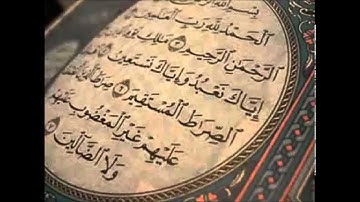 بِسْمِ اللَّهِ
الْحَمْدُ لِلَّهِ رَبِّ الْعَالَمِينَ
الرَّحْمَنِ الرَّحِيمِ ۝ مَالِكِ
إِيَّاكَ نَعْبُدُ وَإِيَّاكَ نَسْتَعِينُ
الصِّرَاطَ الْمُسْتَقِيمَ ۝ صِرَاطَ الَّذِينَ
عَلَيْهِمْ غَيْرِ الْمَغْضُوبِ عَلَيْهِمْ
وَلَا الضَّالِّينَ